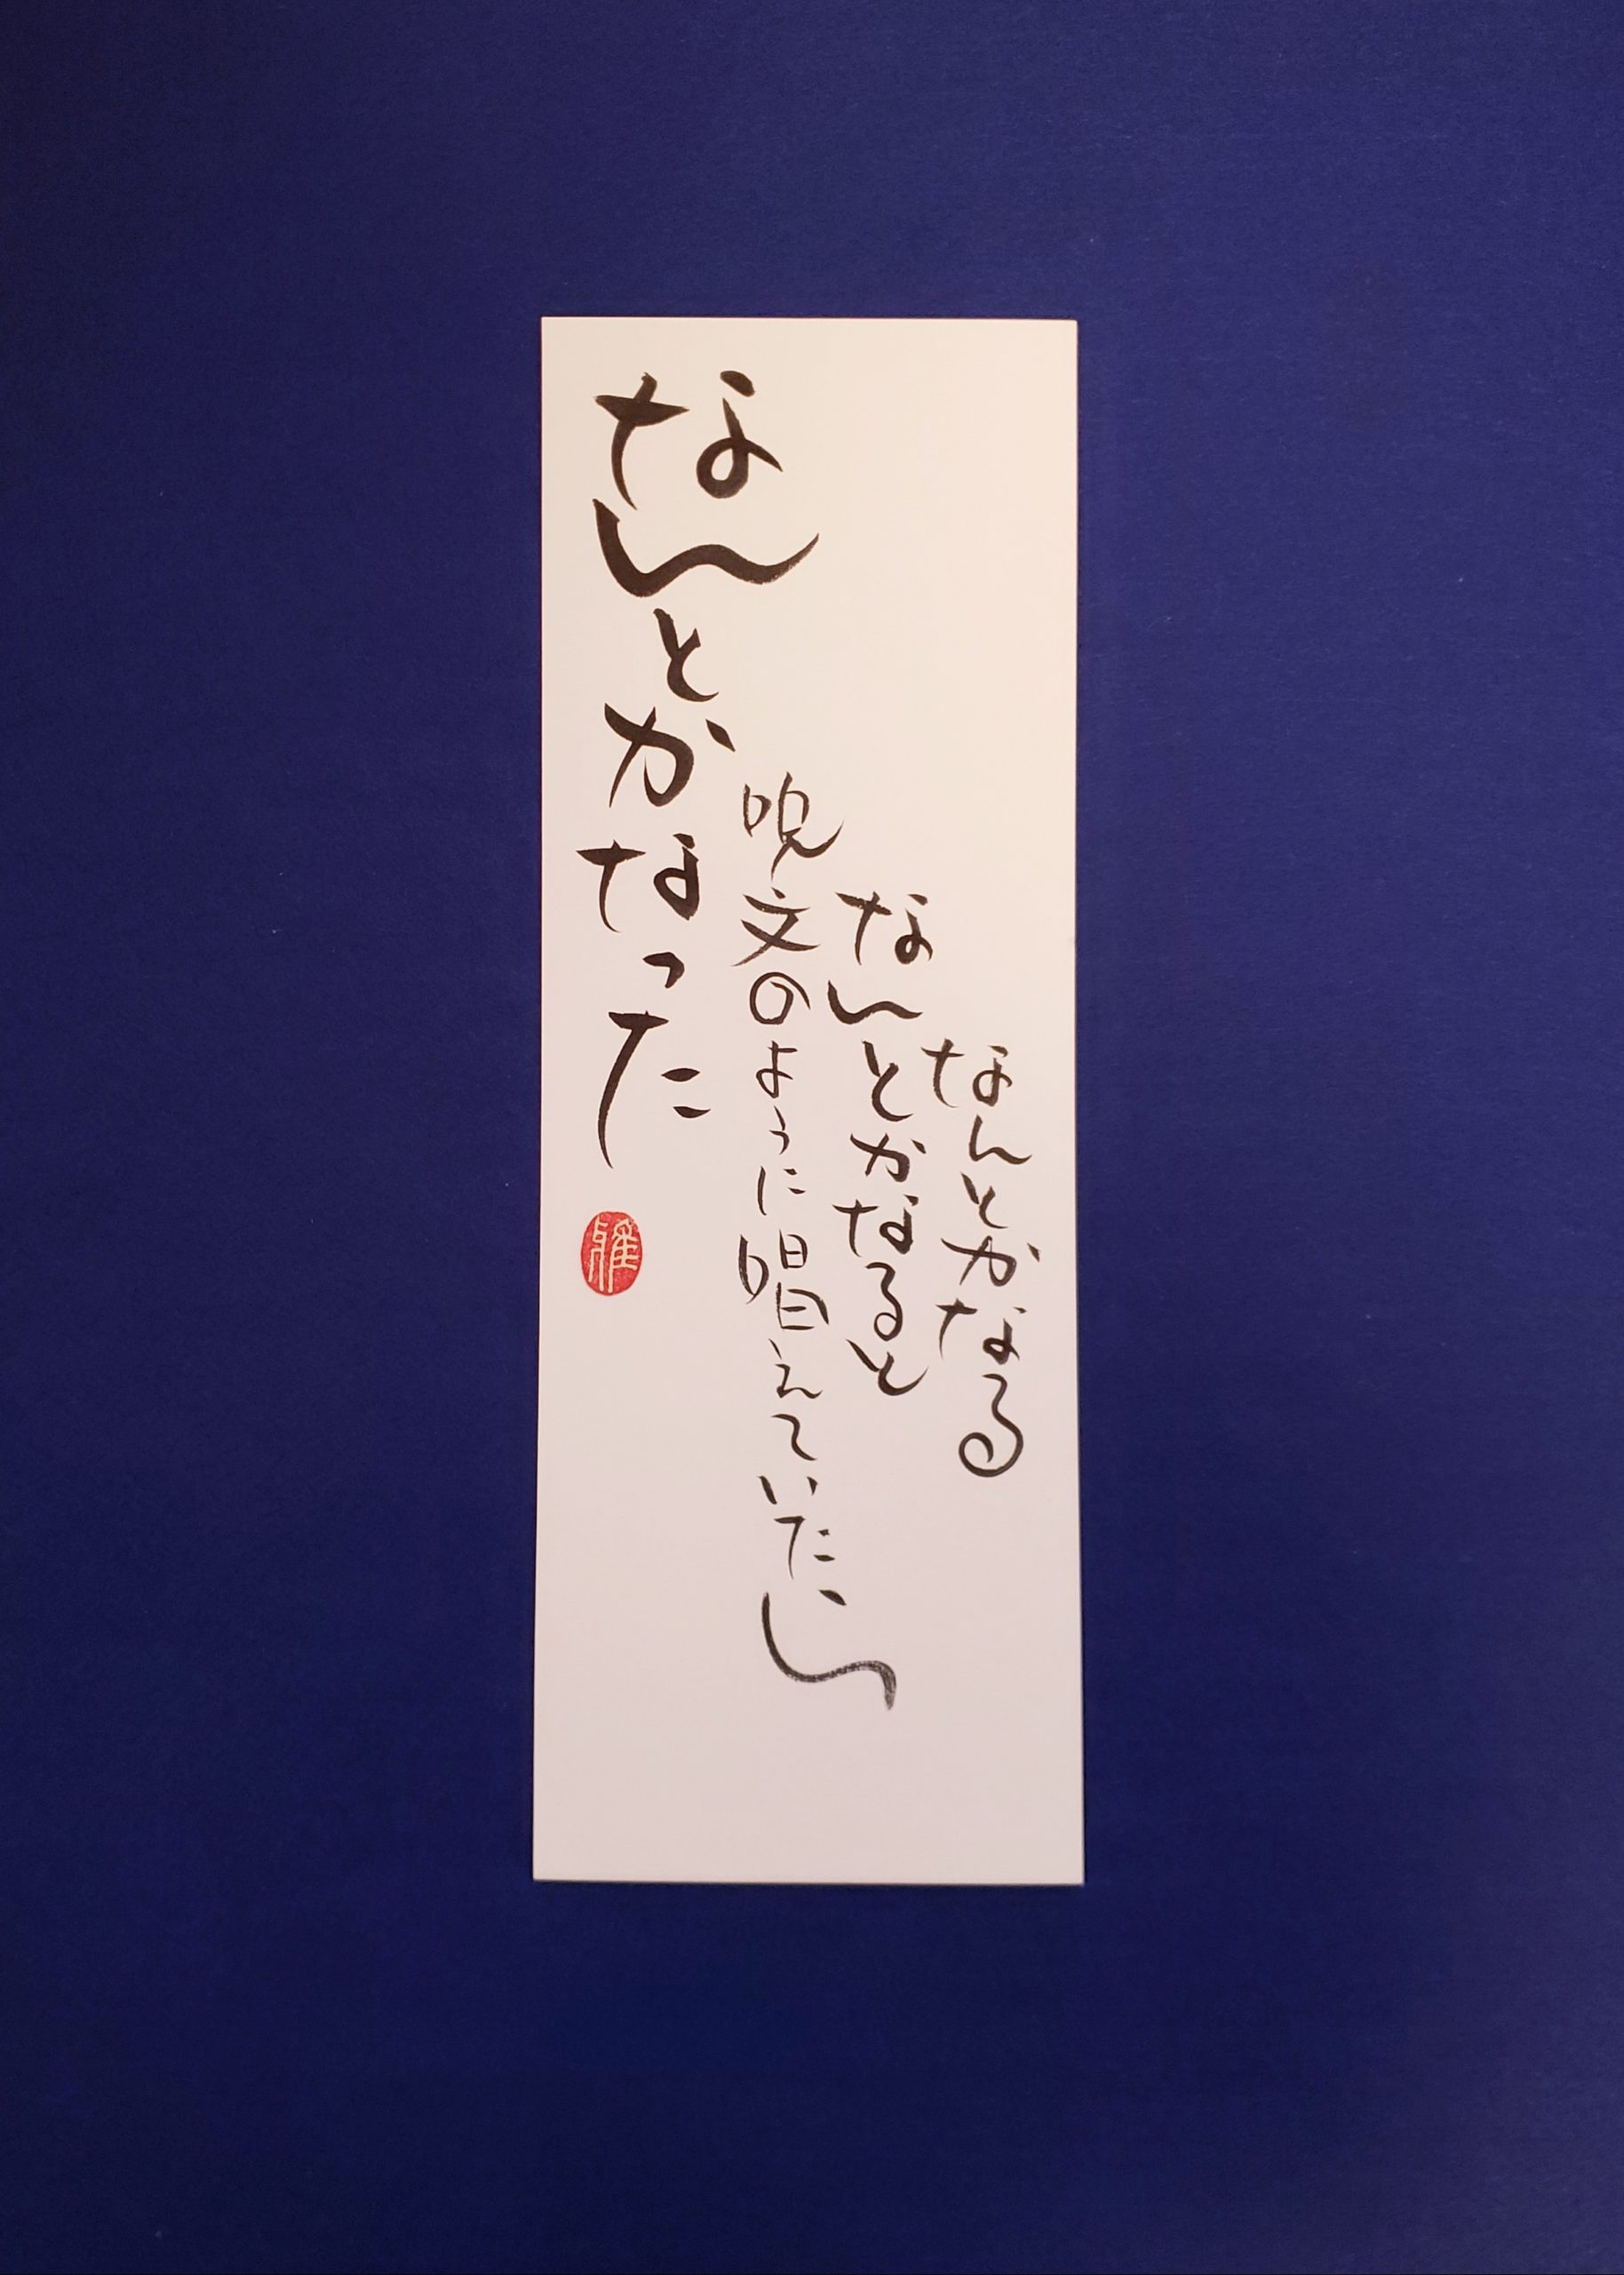 なんとかなる
なんとかなると
呪文のように唱えていたら
なんとかなった
雅